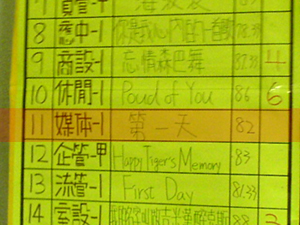 7 資管-甲
8 應中-1 你是我心內的一首歌
9 商設-1 忘情森巴舞 87.33 4
10 休閒-1 Poud of You 86 6
11 媒体-1 第一天 82
12 企管-甲 Happy Tiger's Memory 83
13 流管-1 First Day 81.33
14 室設-1 88